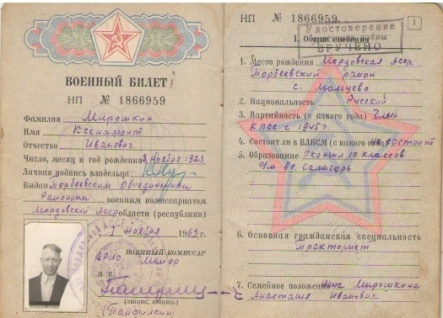 ВОЕННЫЙ БИЛЕТ
НП № 1866959
Фамилия Мирошкин
Имя Ксенофонт
Отчество Иванович
Число, месяц и год рождения 8 ноября 1923
Личная подпись владельца
Выдан Торбеевским Объединенным
Районным военным комиссариатом
Мордовской АССР области (республики)
1 ноября 1963 г.
ВОЕННЫЙ КОМИССАР
Врио. Майор
М. П.
(Панфилкин)
НП № 1866959
1
Удостоверение
войны
ВРУЧЕНО
I. Общие сведения
1. Место рождения Мордовская АССР
Торбеевский район
с.
2. Национальность Русский
3. Партийность (с какого года) Член
КПСС с 1945 г.
4. Состоит ли в ВЛКСМ (с какого не состоит
5. Образование Окончил 10 классов
6. Основная гражданская специальность
тракторист
7. Семейное положение жена Мирошкина
Анастасия Ивановна